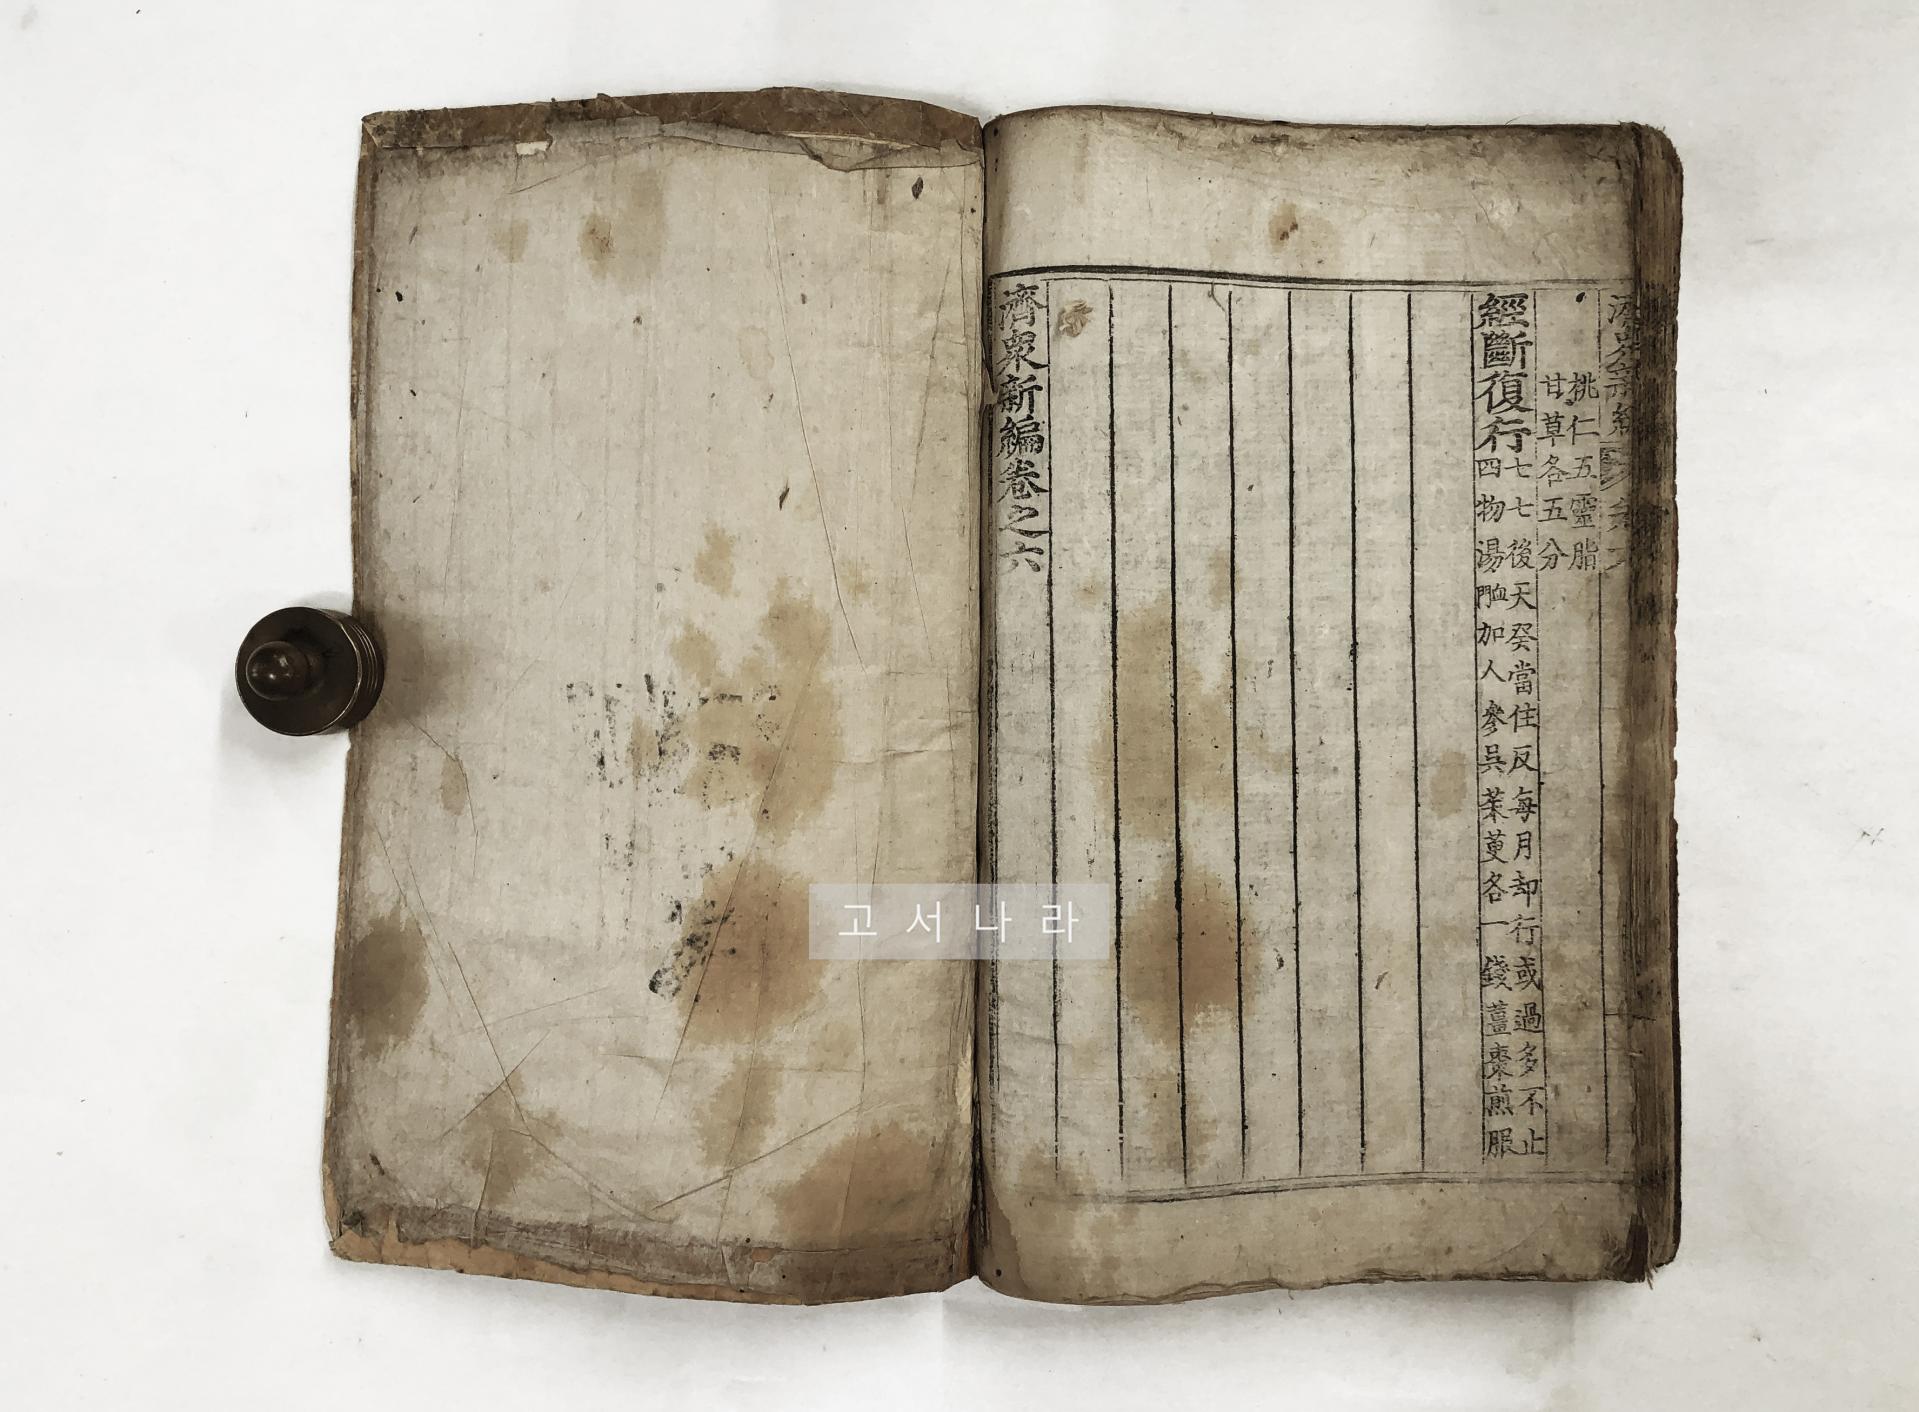 桃仁五靈脂
甘草各五分
經斷復行
七七後天癸當住反每月却行或過多不止
四物湯加人參吳茱萸各一錢薑棗煎服
濟衆新編卷之六
고서나라